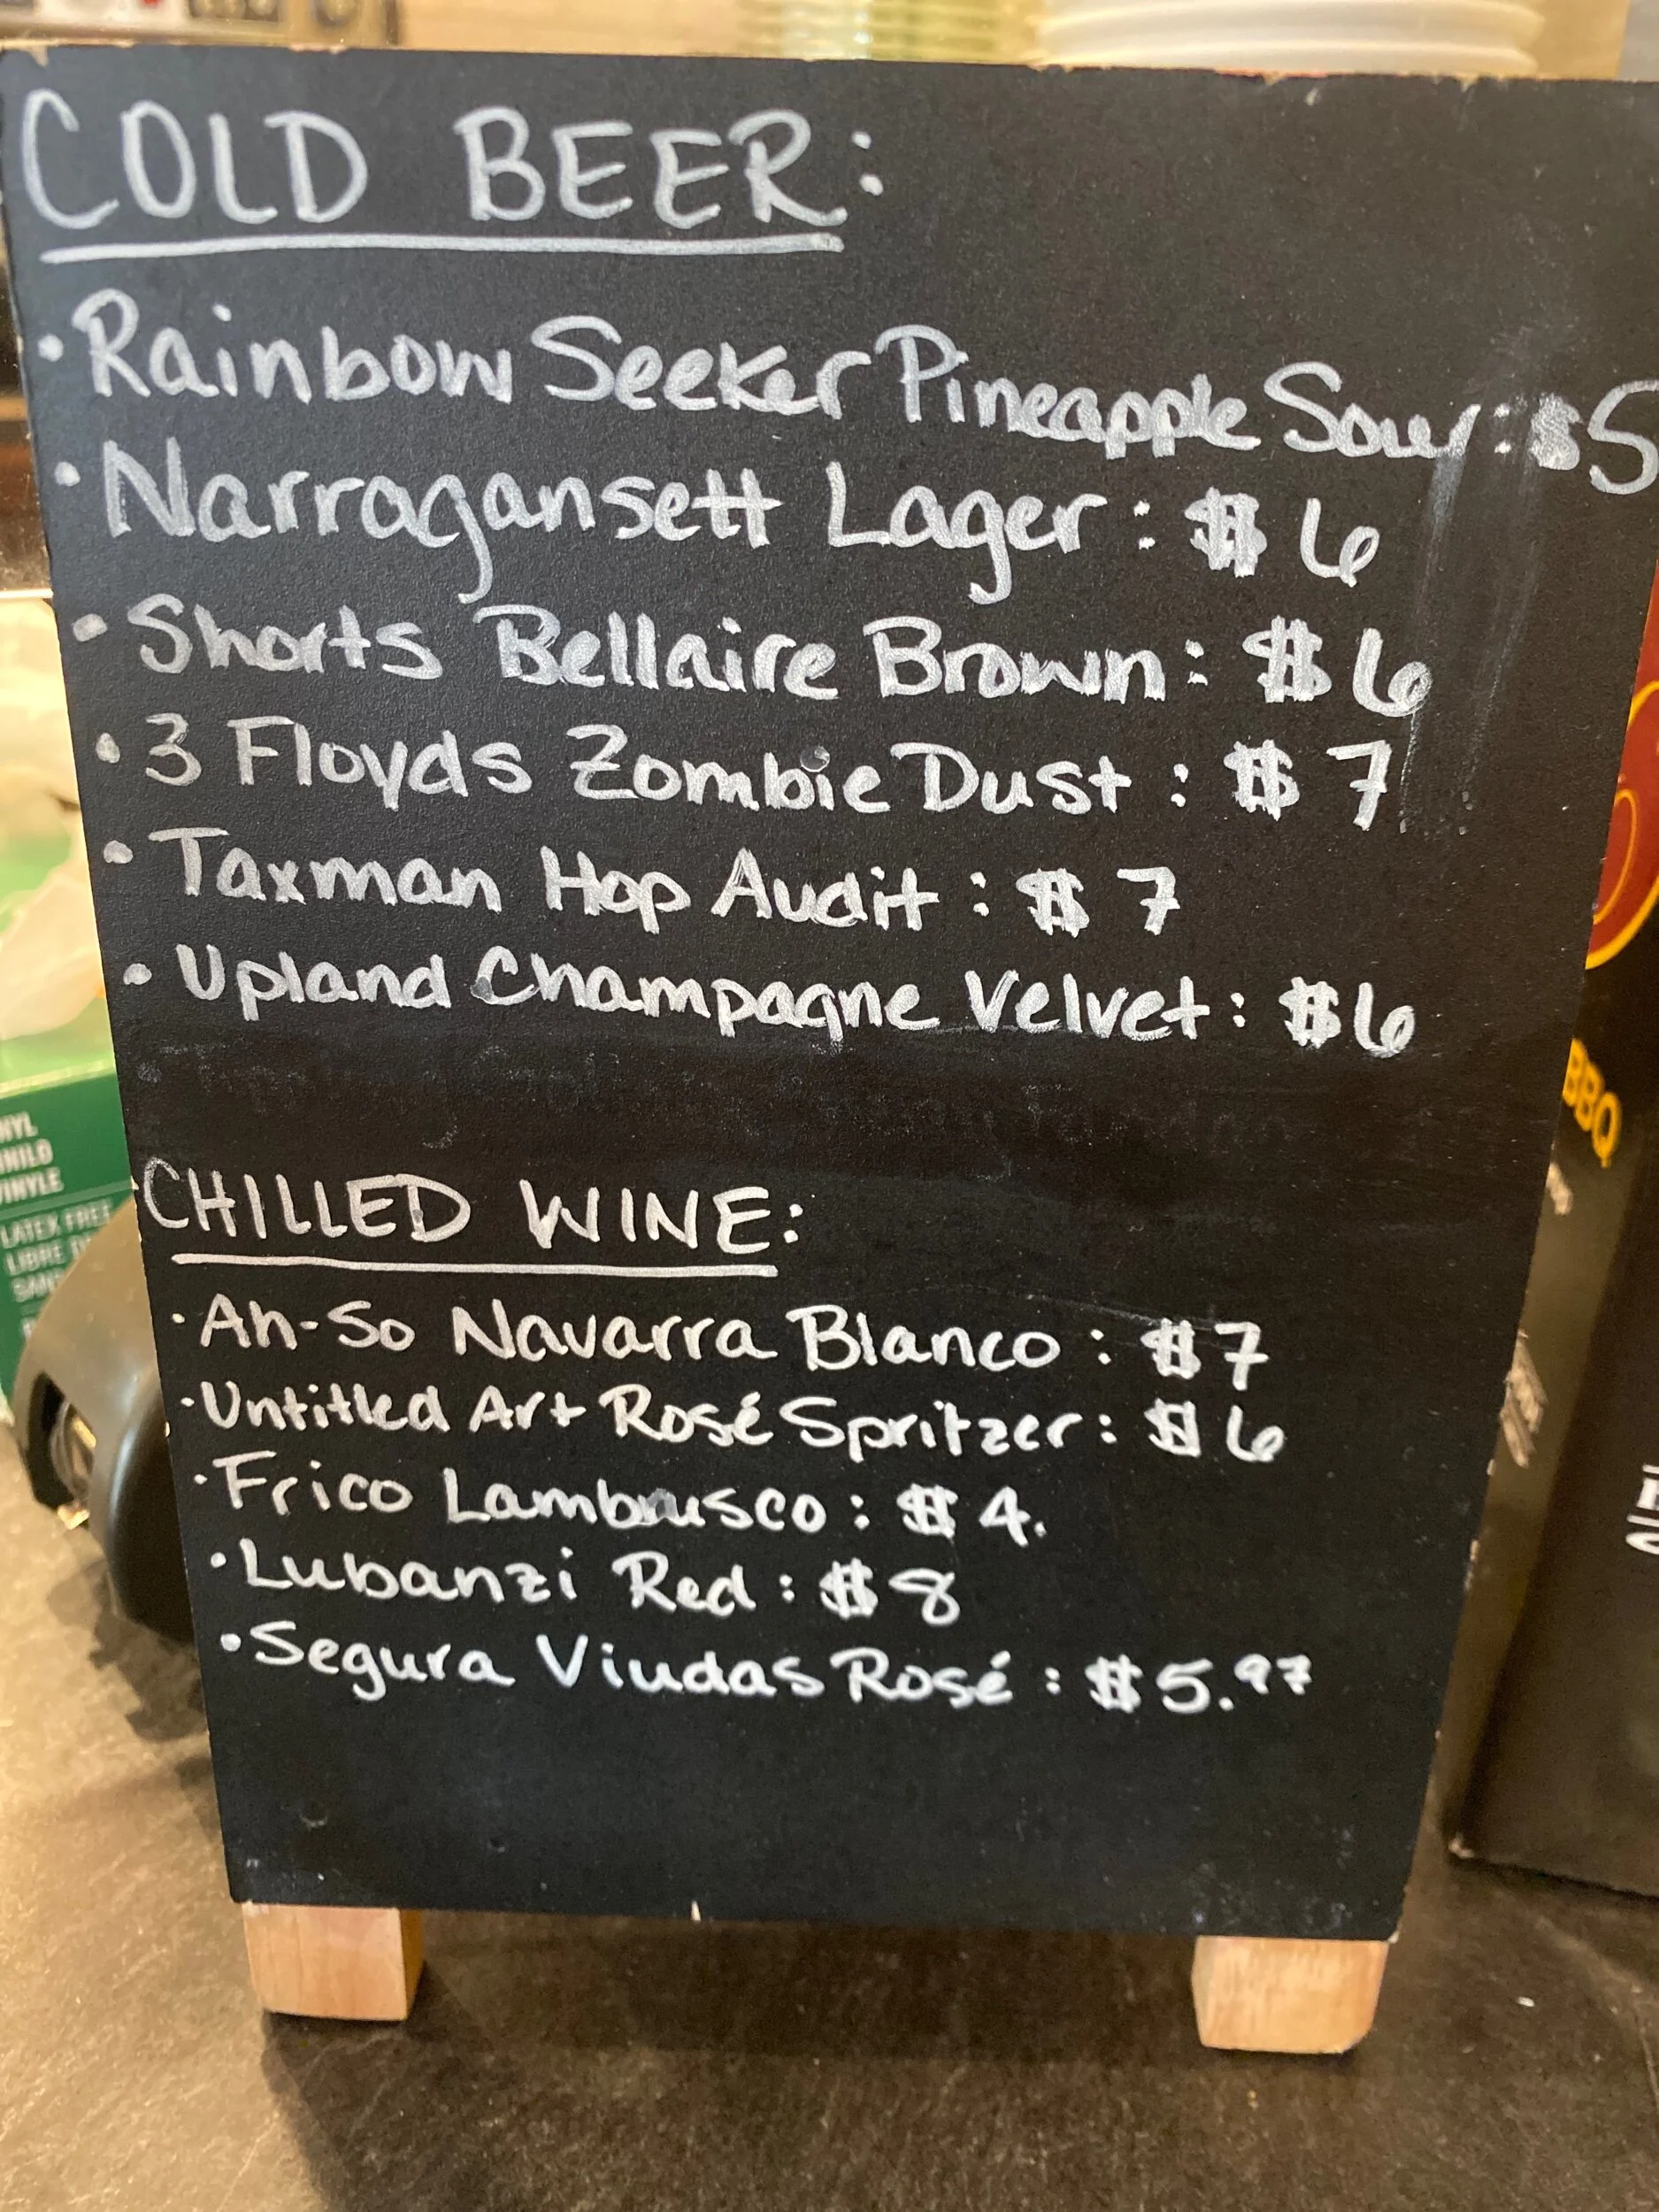 COLD BEER:
• Rainbow Seeker Pineapple Sour: $5
• Narragansett Lager: $6
• Shorts Bellaire Brown: $6
• 3 Floyds Zombie Dust: $7
• Taxman Hop Audit: $7
• Upland Champagne Velvet: $6
CHILLED WINE:
• Ah-So Navarra Blanco: $7
• Untitled Art Rosé Spritzer: $6
• Frico Lambrusco: $4.
• Lubanzi Red: $8
• Segura Viudas Rosé: $5.97
LATEX FREE
BBQ